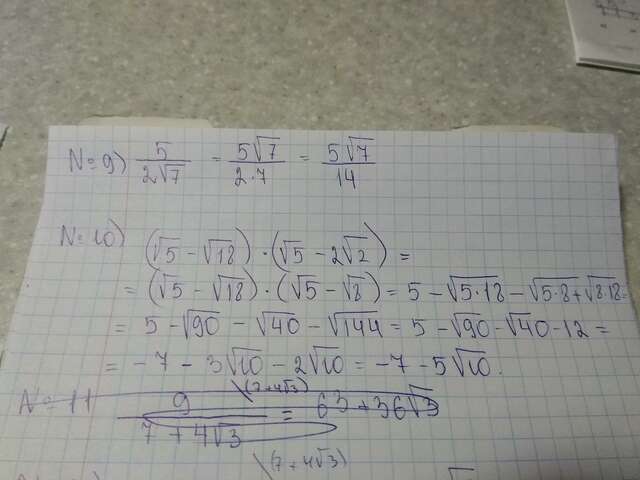 N=9) 5/2√7 = 5√7/2·7 = 5√7/14
N=10) (√5 - √18) · (√5 - 2√2) =
= (√5 - √18) · (√5 - √8) = 5 - √5·18 - √5·8 + √8·18 =
= 5 - √90 - √40 - √144 = 5 - √90 - √40 - 12 =
= -7 - 3√10 - 2√10 = -7 - 5√10.
N=11 9/7 + 4√3 \(7+4√3) = 63 + 36√3
\(7+4√3)